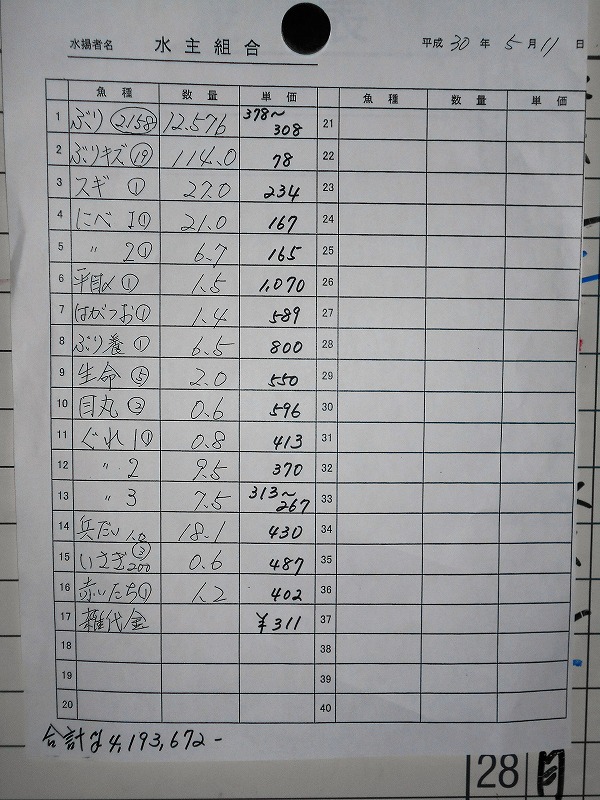 水揚者名 水主組合 平成30年5月11日
魚種 数量 単価 魚種 数量 単価
1 ぶり (2,158) 12.576 378〜308 21
2 ぶりキズ (19) 114.0 78 22
3 スギ ① 27.0 234 23
4 にべ 1① 21.0 167 24
5 〃 2① 6.7 165 25
6 平目〆 ① 1.5 1,070 26
7 はがつお① 1.4 589 27
8 ぶり養 ① 6.5 800 28
9 生命 ⑤ 2.0 550 29
10 目丸 ② 0.6 596 30
11 ぐれ 1① 0.8 413 31
12 〃 2 9.5 370 32
13 〃 3 7.5 313〜267 33
14 兵だい 1.0 18.1 430 34
15 いさぎ ③ 200 0.6 487 35
16 赤いたち① 1.2 402 36
17 雑代金 ¥311 37
18 38
19 39
20 40
合計 4,193,672-
28 月